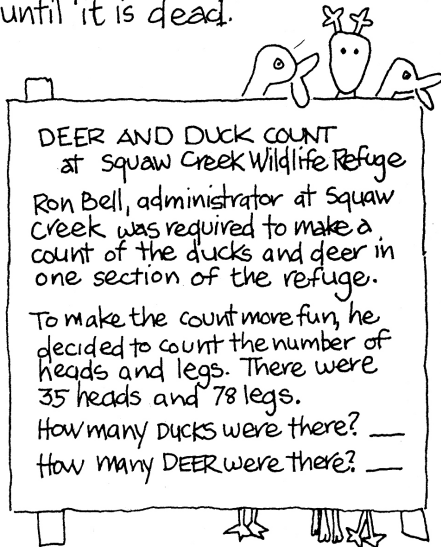 until it is dead.
DEER AND DUCK COUNT
at Squaw Creek Wildlife Refuge
Ron Bell, administrator at Squaw
Creek was required to make a
count of the ducks and deer in
one section of the refuge.
To make the count more fun, he
decided to count the number of
heads and legs. There were
35 heads and 78 legs.
How many DUCKS were there? ___
How many DEER were there? ___